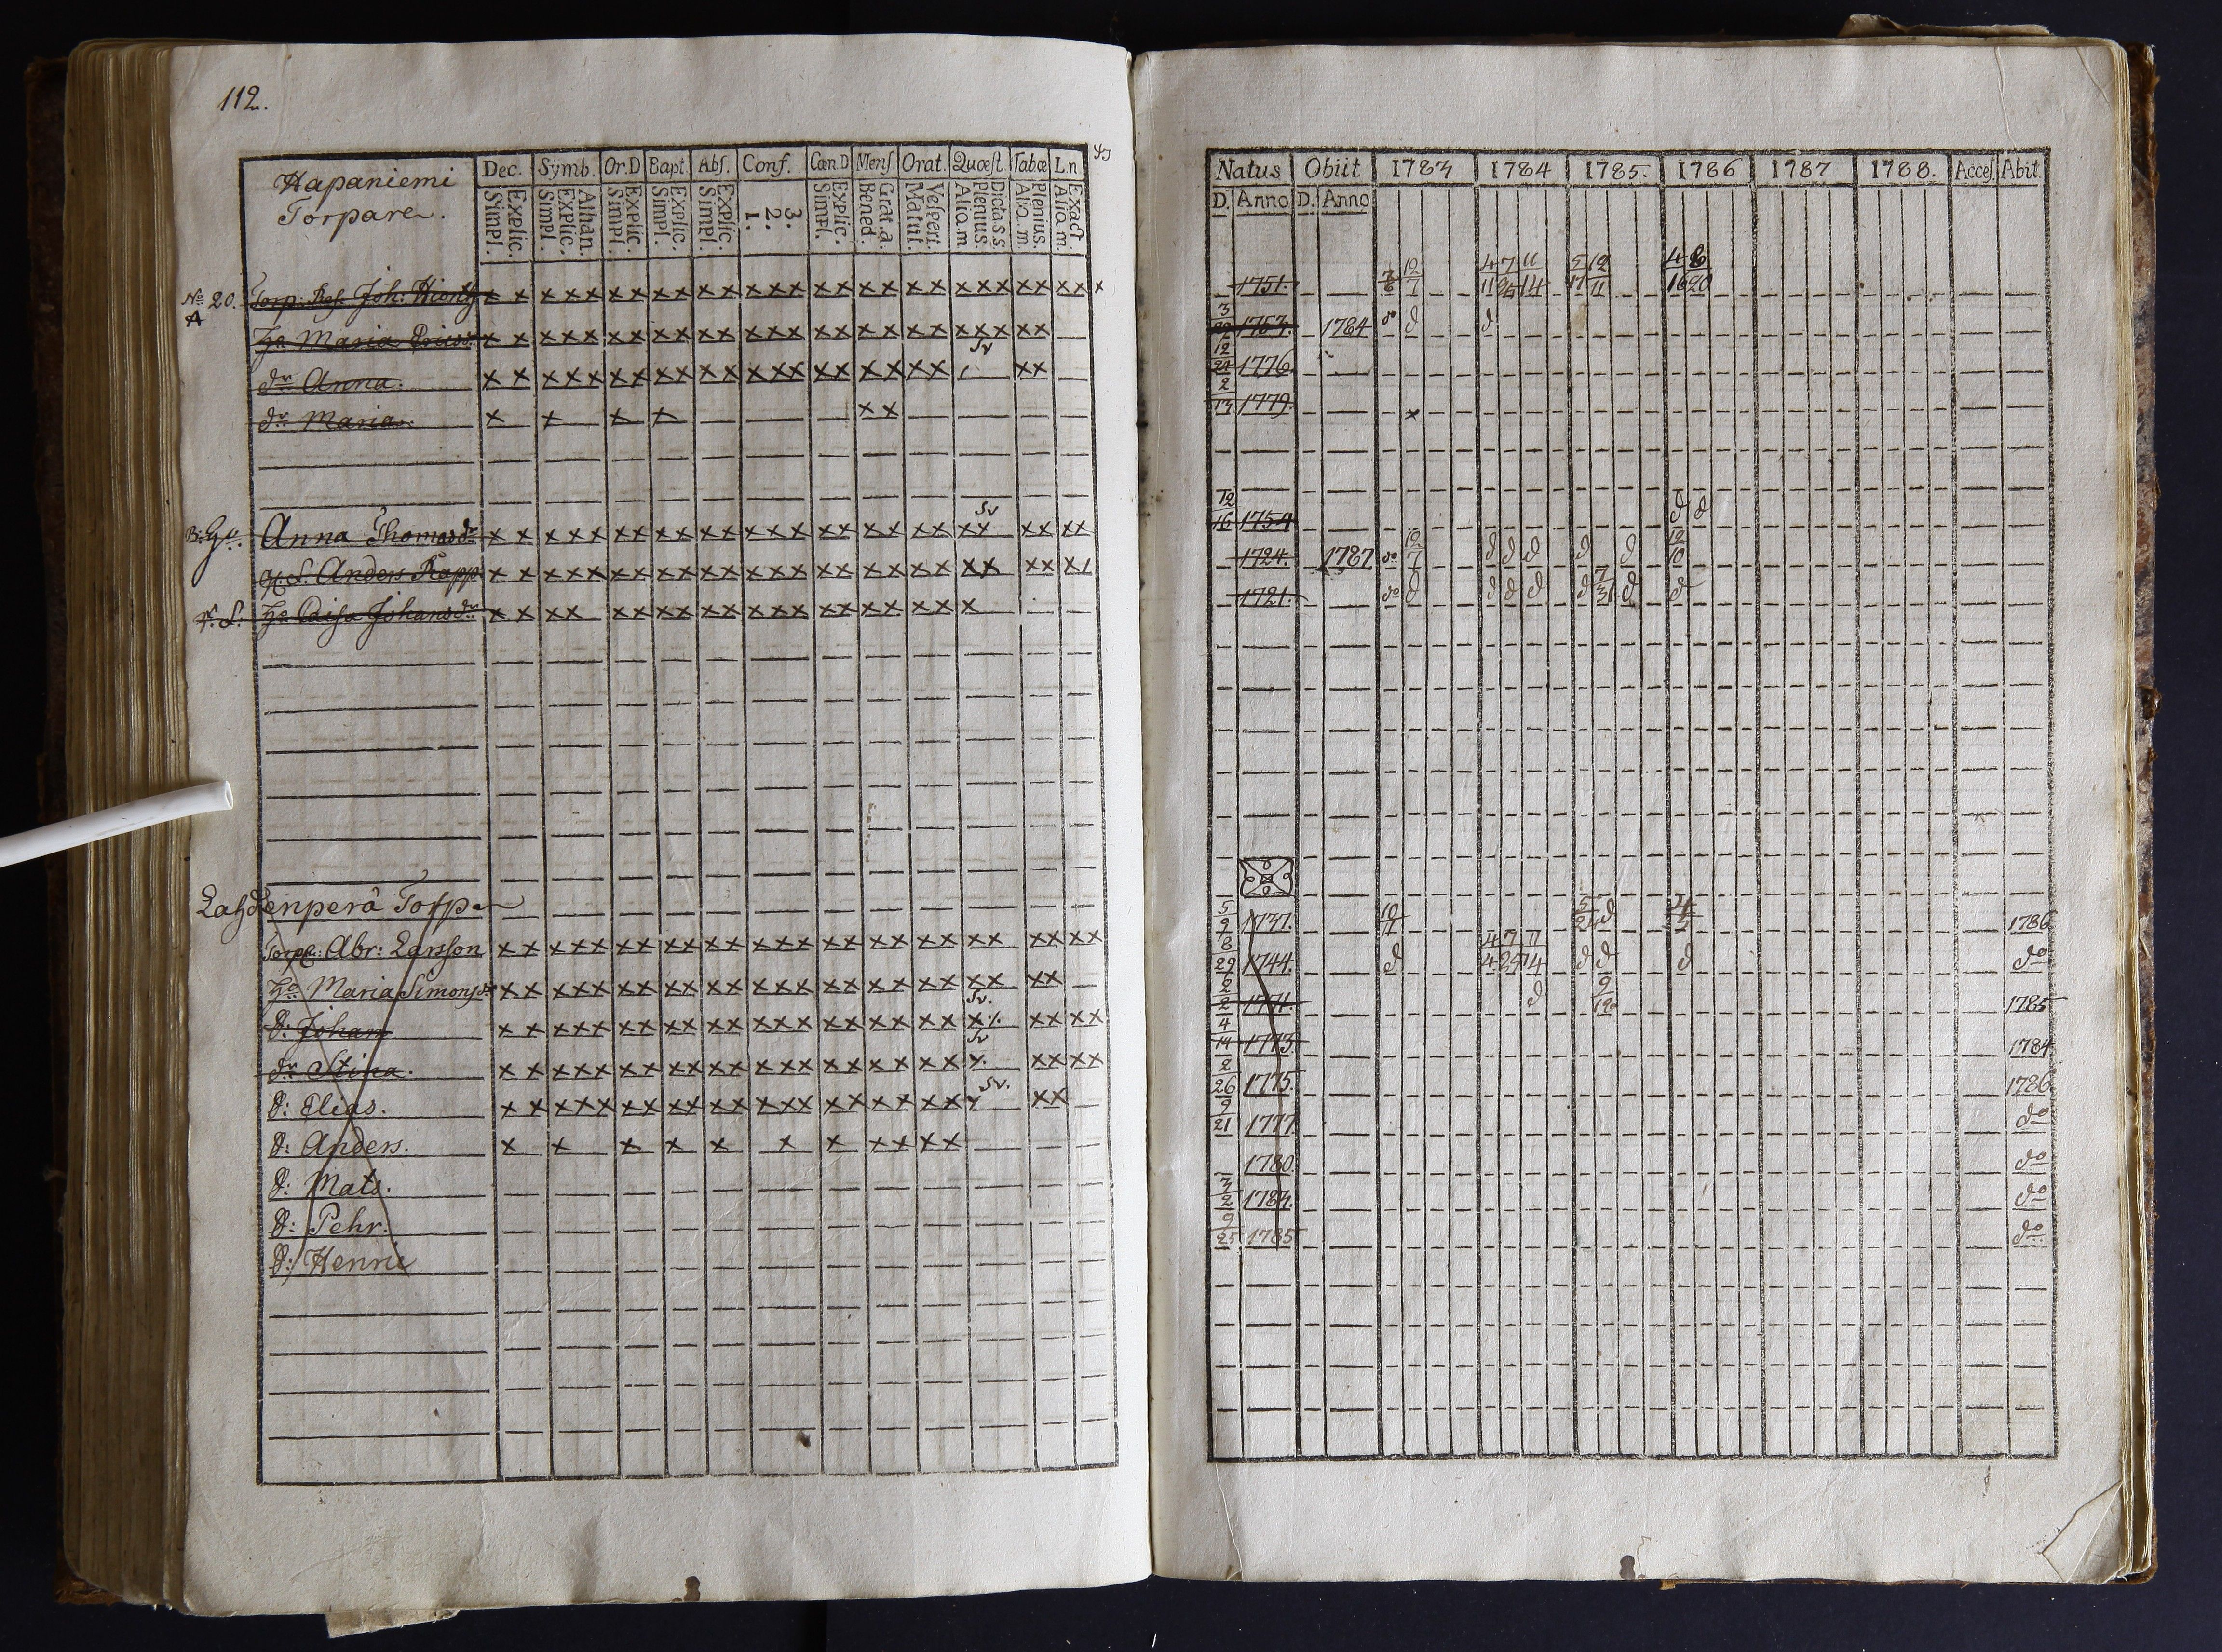 112.
Hapaniemi
Torpare.
Dec. Symb. Or.D Bapt. Abs. Conf. Cœn.D Mens Orat. Quæst. Tabœ L.n
Simpl. Explic. Simpl. Explic. Athan. Simpl. Explic. Simpl. Explic. Simpl. Explic. 1. 2. 3. Simpl. Explic. Bened. Grat. a. Matut. Vespert. Alio. m. Plenius. Dicta s s. Alio. m. Plenius. Alio. m. Exact
No 20. Torp: Joh:
A
Maria Ericsd.
dr Anna.
dr Maria.
B: Anna Thomasdr
Anders Rapp
Caisa Johansdr
Lahdenperä Torp
Torp: Abr: Larsson
Maria Simonsdr
S: Johan
dr Stina.
S: Elias.
S: Anders.
S: Mats.
S: Pehr.
S: Henric
Natus Obiit 1783 1784 1785. 1786 1787 1788. Acces Abit.
D. Anno D. Anno
1751. 12 7 4 7 11 11 25 14 5 12 17 11 4 8 16 20
3 1753. 1784 do d d
12 24 1776
2 13 1779.
12 16 1754 d d
1724. 1787 do 12 7 d d d d d 12 10
1721. do d d d d d 7 31 d d
5 9 1737. 10 5 24 d 1786
8 29 1744. d 4 7 11 4 25 14 d d d do
2 2 1771. d 9 1785
4 14 1773. 1784
2 26 1775. 1786
9 21 1777. do
1780. do
3 2 1783. do
9 25 1785 do